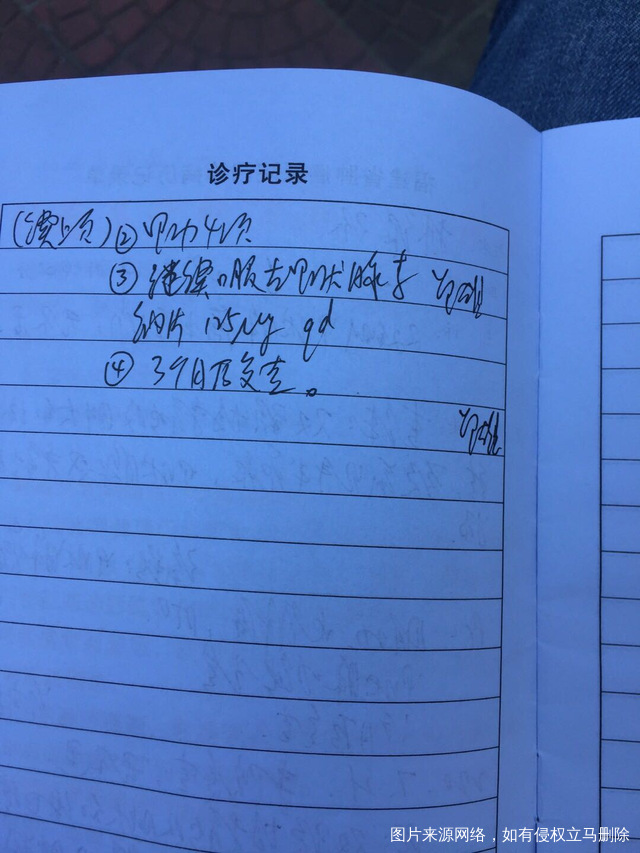 诊疗记录
(续上页) ② 甲功4项
③ 继续口服左甲状腺素
钠片 125μg qd
④ 3个月后复查。
图片来源网络，如有侵权立马删除